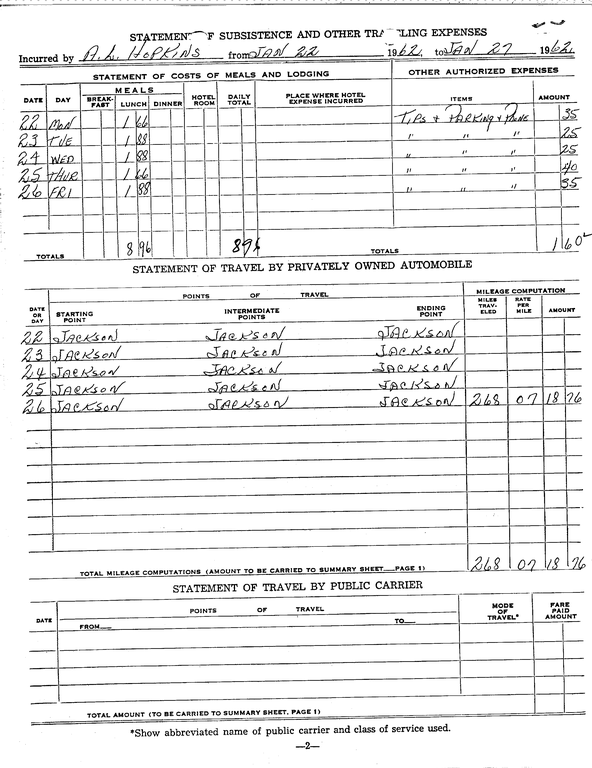 STATEMENT OF SUBSISTENCE AND OTHER TRAVELLING EXPENSES
Incurred by A. L. HOPKINS from JAN 22 1962, to JAN 27 1962.
STATEMENT OF COSTS OF MEALS AND LODGING OTHER AUTHORIZED EXPENSES
DATE DAY MEALS BREAK-FAST LUNCH DINNER HOTEL ROOM DAILY TOTAL PLACE WHERE HOTEL EXPENSE INCURRED ITEMS AMOUNT
22 MON 1 66 TIPS & PARKING & PHONE 35
23 TUE 1 88 " " " 25
24 WED 1 88 " " " 25
25 THUR 1 66 " " " 40
26 FRI 1 88 " " " 35
TOTALS 8 96 8 96 TOTALS 1 60
STATEMENT OF TRAVEL BY PRIVATELY OWNED AUTOMOBILE
DATE OR DAY POINTS OF TRAVEL MILEAGE COMPUTATION
STARTING POINT INTERMEDIATE POINTS ENDING POINT MILES TRAV-ELED RATE PER MILE AMOUNT
22 JACKSON JACKSON JACKSON
23 JACKSON JACKSON JACKSON
24 JACKSON JACKSON JACKSON
25 JACKSON JACKSON JACKSON
26 JACKSON JACKSON JACKSON 268 07 18 76
TOTAL MILEAGE COMPUTATIONS (AMOUNT TO BE CARRIED TO SUMMARY SHEET—PAGE 1) 268 07 18 76
STATEMENT OF TRAVEL BY PUBLIC CARRIER
DATE POINTS OF TRAVEL MODE OF TRAVEL* FARE PAID AMOUNT
FROM— TO—
TOTAL AMOUNT (TO BE CARRIED TO SUMMARY SHEET, PAGE 1)
*Show abbreviated name of public carrier and class of service used.
—2—